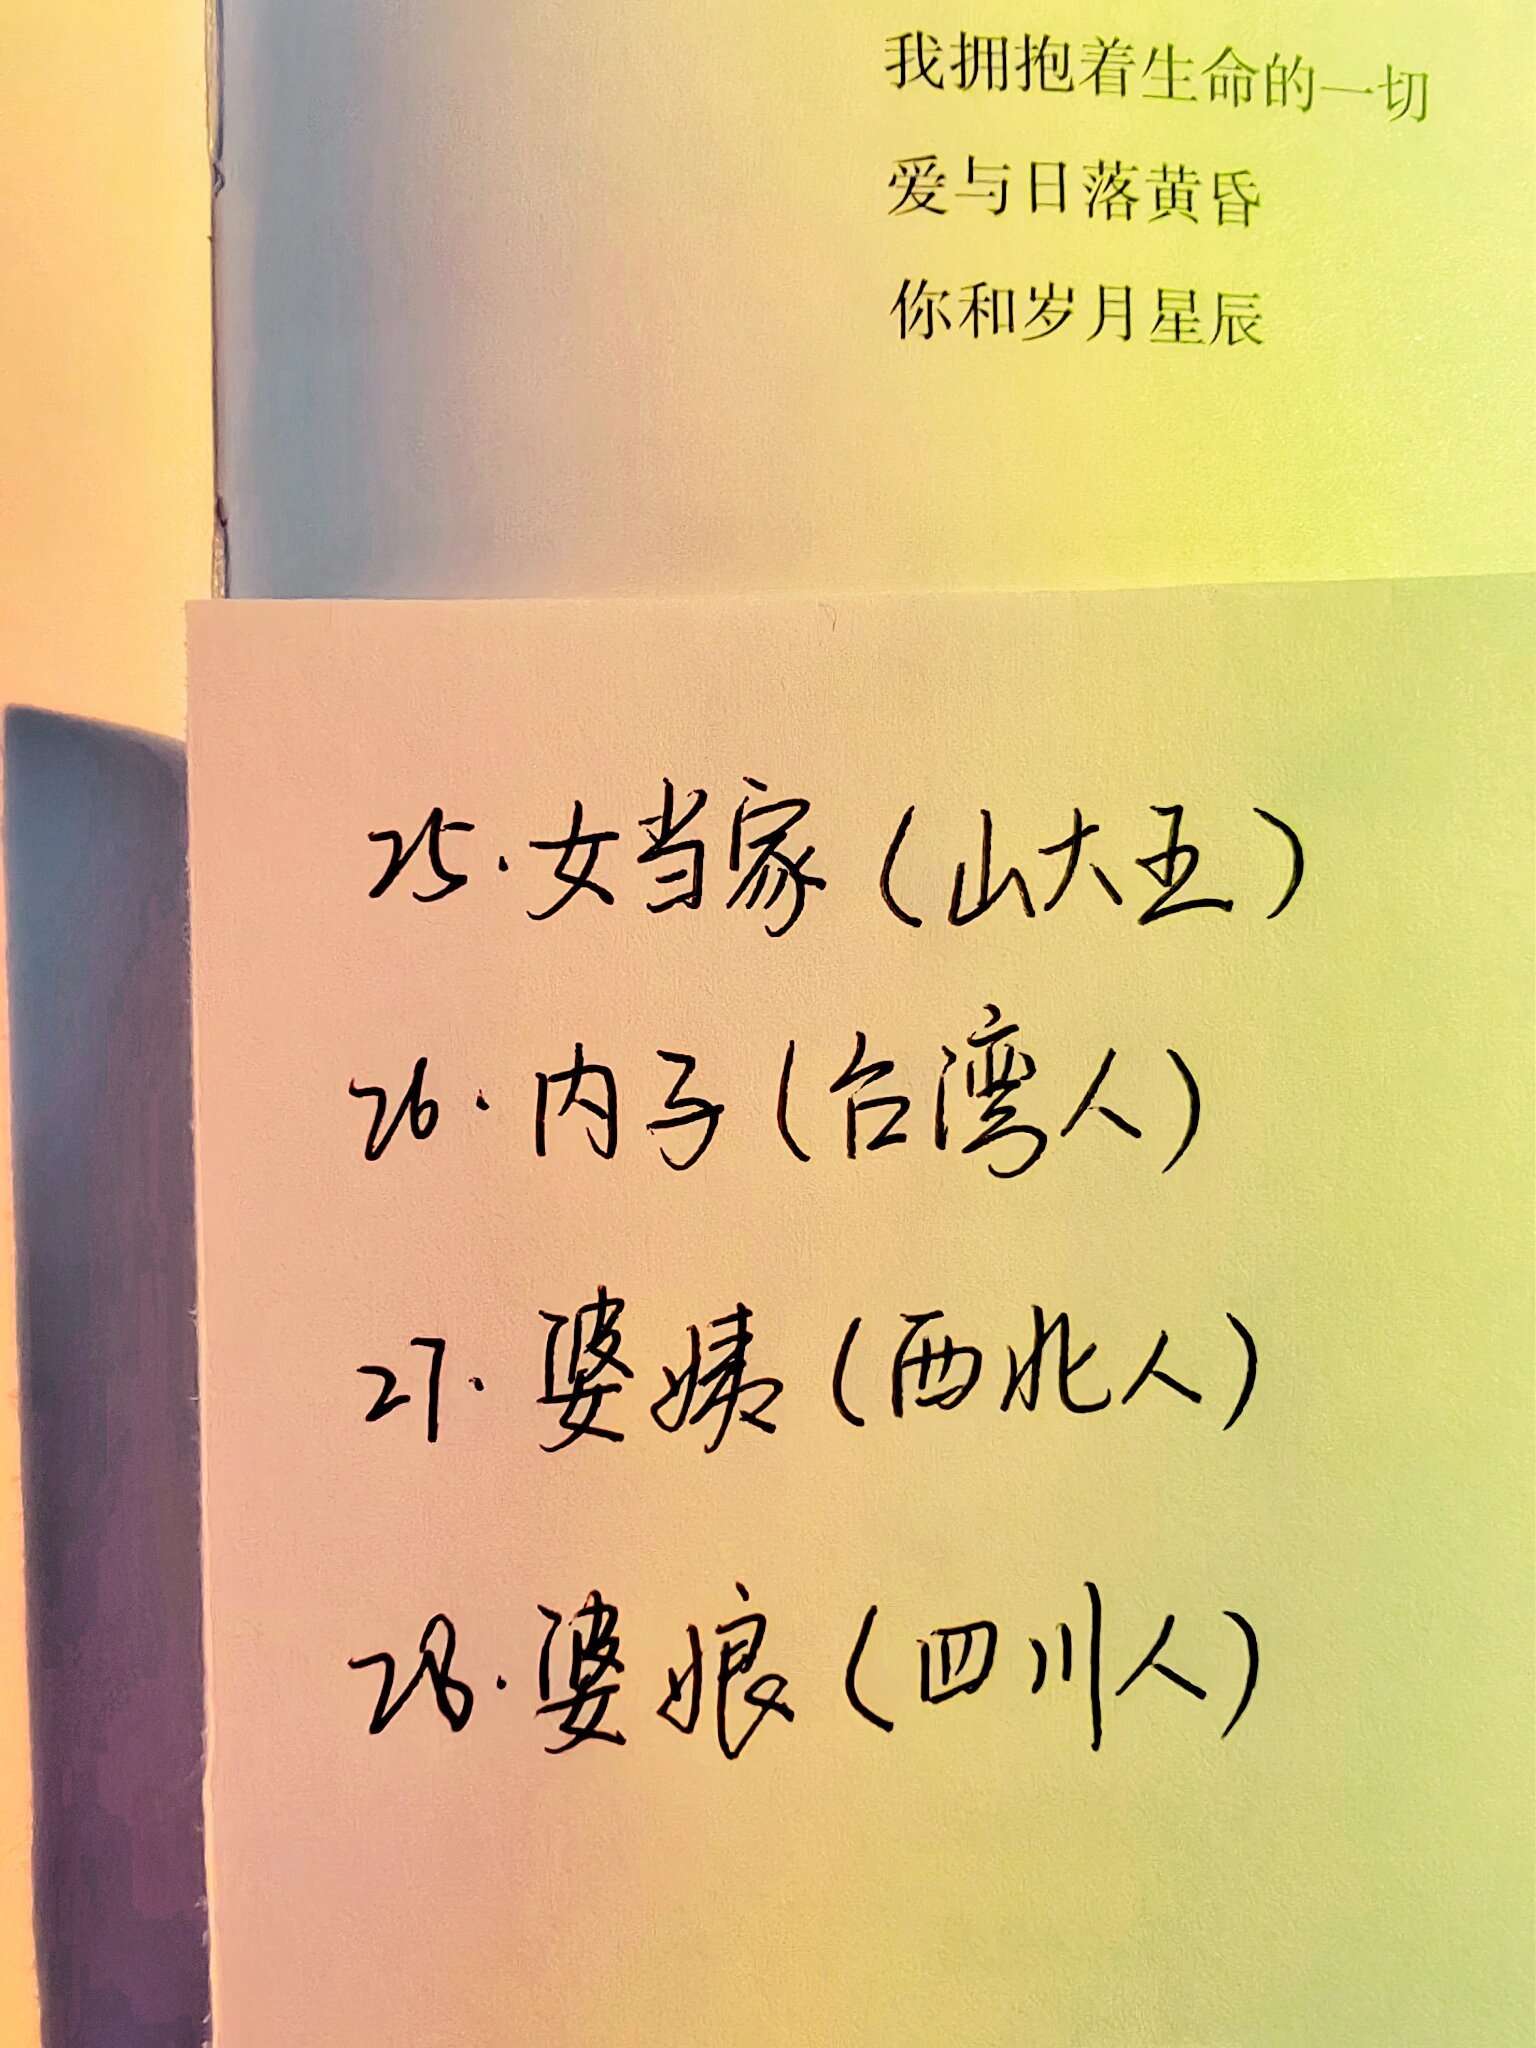 我拥抱着生命的一切
爱与日落黄昏
你和岁月星辰
25.女当家(山大王)
26.内子(台湾人)
27.婆姨(西北人)
28.婆娘(四川人)